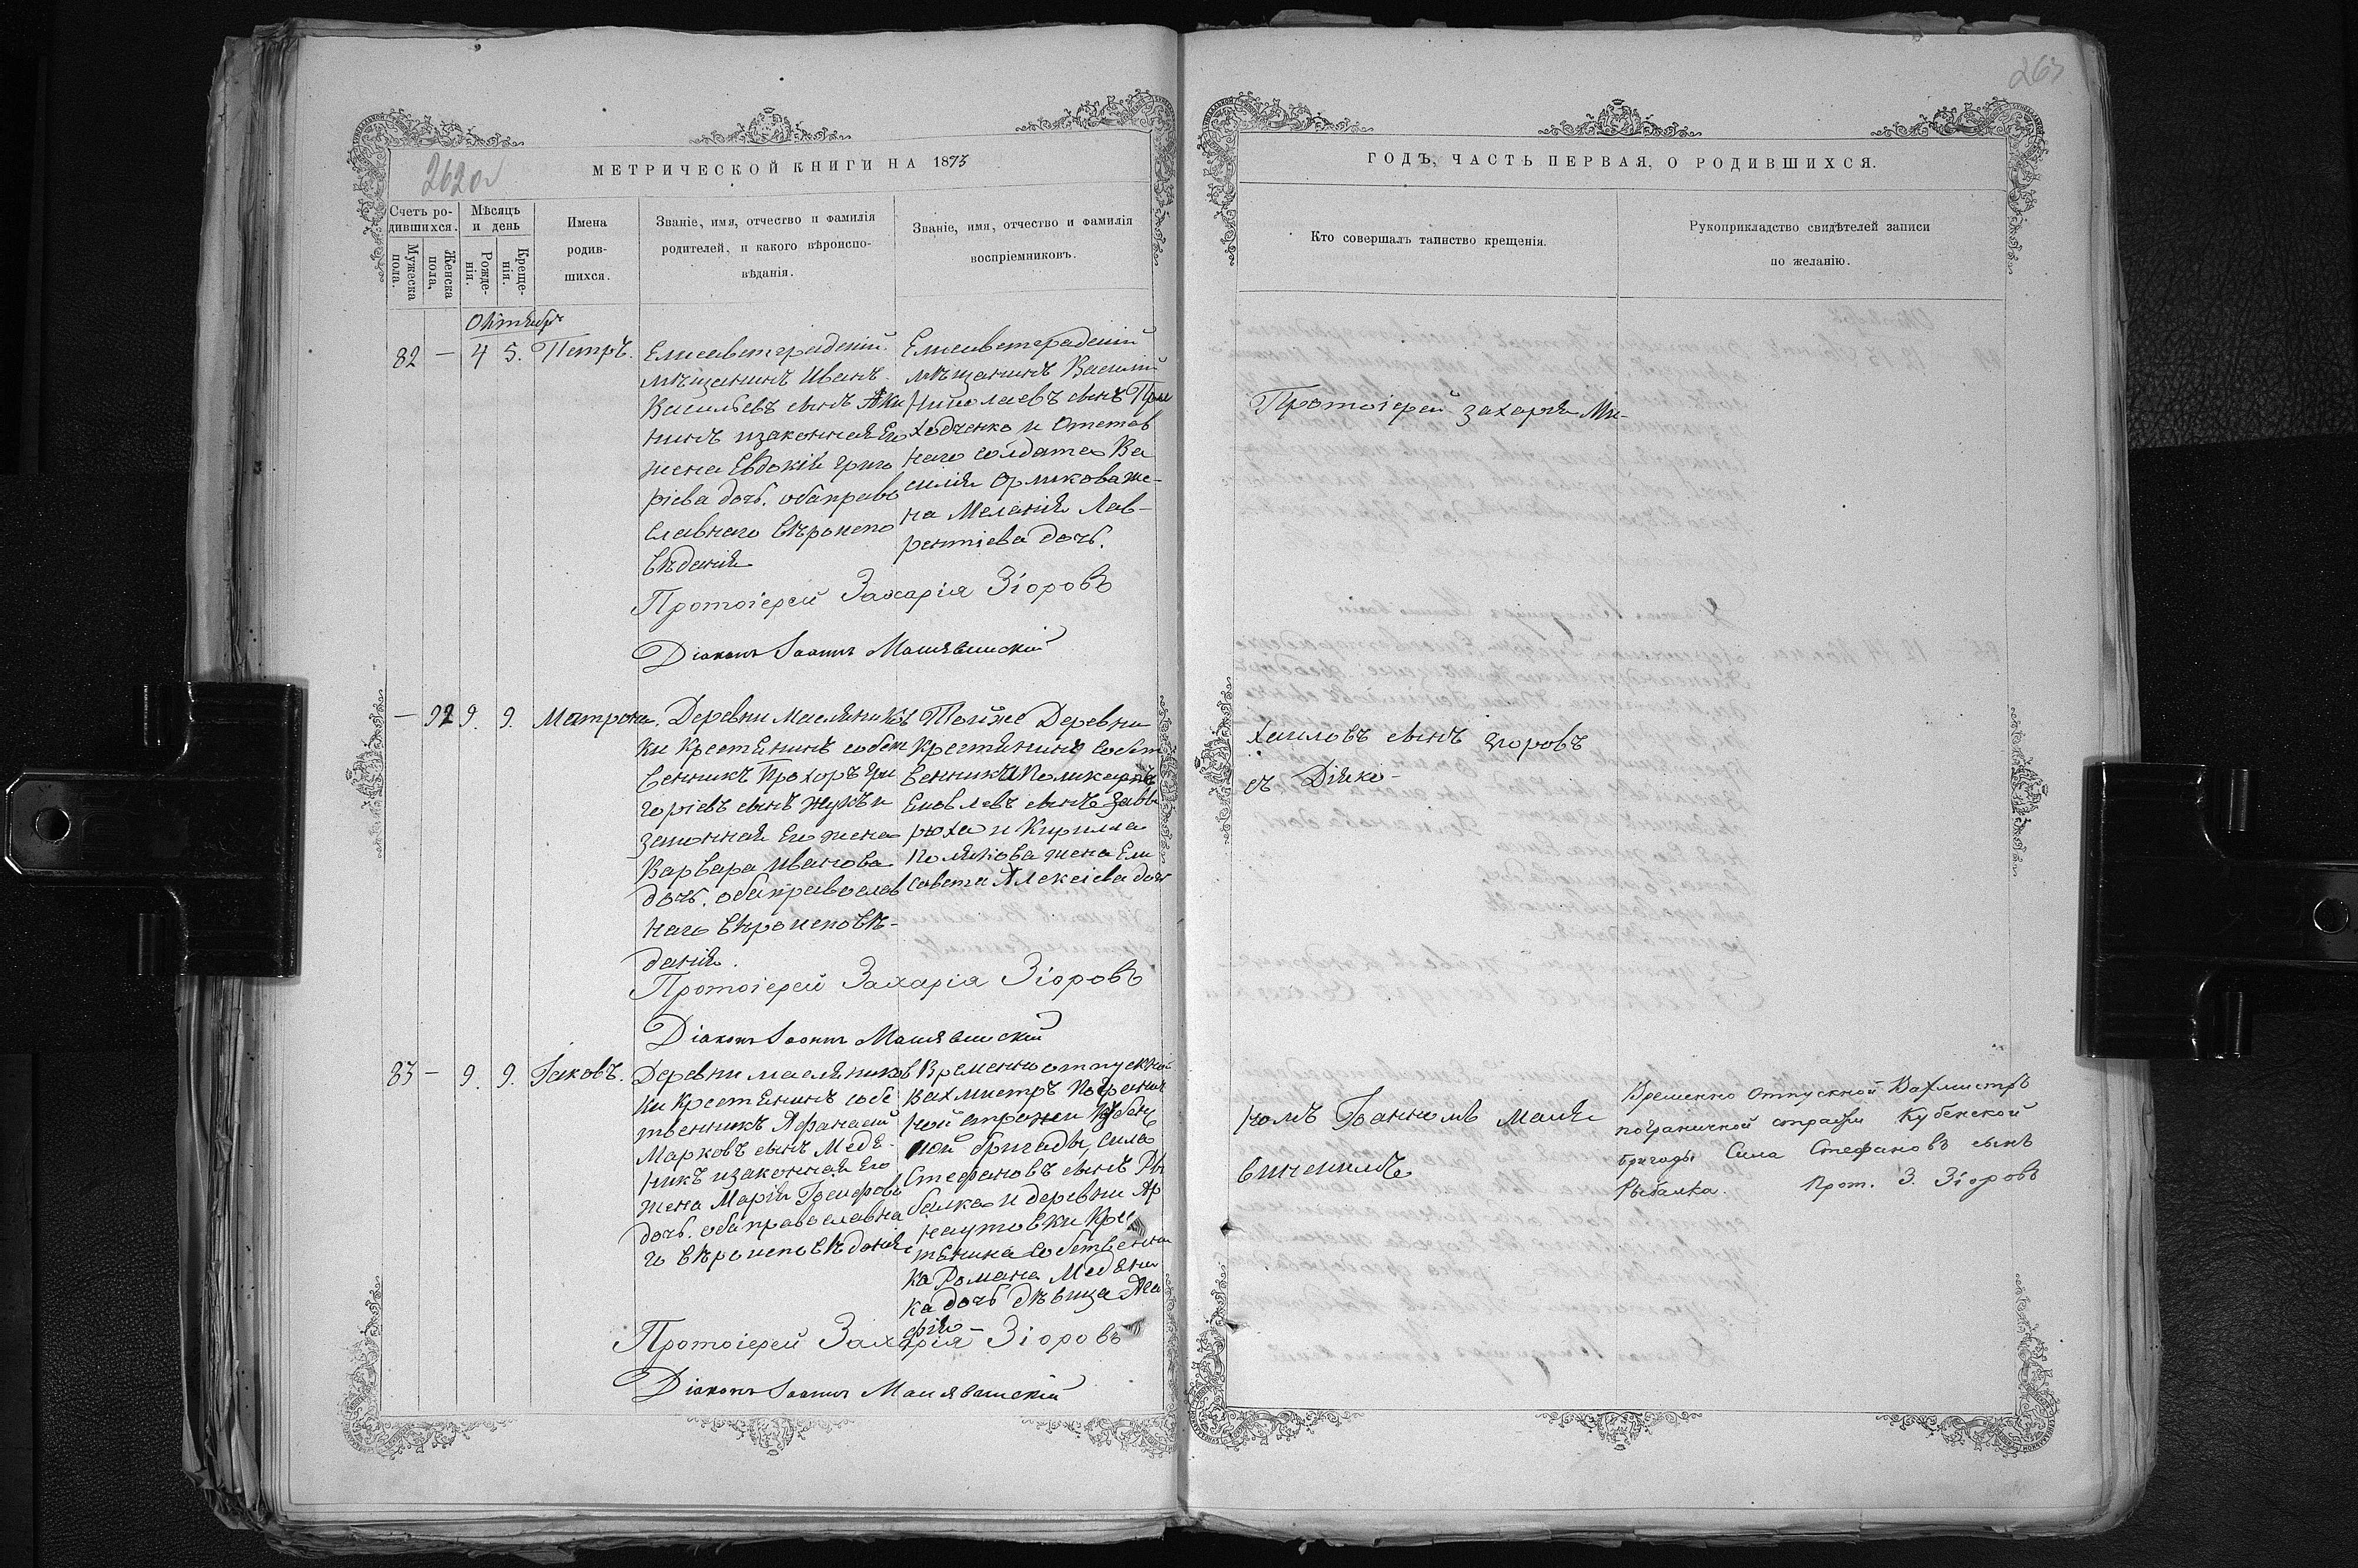 262об
МЕТРИЧЕСКОЙ КНИГИ НА 1875
Счетъ ро-
дившихся.
Мужеска
пола.
Женска
пола.
Мѣсяцъ
и день
Рожде-
нія.
Креще-
нія.
Имена
родив-
шихся.
Званіе, имя, отчество и фамилія
родителей, и какого вѣроиспо-
вѣданія.
Званіе, имя, отчество и фамилія
воспріемниковъ.
Октябрь
82 — 4 5. Петръ.
Елисаветградскій
мѣщанинъ Иванъ
Васильевъ сынъ Аки
нинъ изаконная Его
жена Евдокія Григо
ріева дочь. оба право
славнаго вѣроиспо
вѣданія
Елисаветградскій
мѣщанинъ Василій
Николаевъ сынъ При
ходченко и Отстав
наго солдата Ва
силія Орликова же-
на Меланія Лав-
рентіева дочь.
Протоіерей Захарія Зіоровъ
Діаконъ Іоаннъ Малявинскій
— 92 9. 9. Матрона.
Деревни Маслянников
ки Крестьянинъ собст
венникъ Прохоръ Гри
горіевъ сынъ Жукъ и
законная Его жена
Варвара Иванова
дочь. оба православ
наго вѣроисповѣ-
данія.
Той же Деревни
Крестьянинъ Собст
венникъ Поликарпъ
Евлевъ сынъ Завь
рюха и Кирилла
Полякова жена Ели
савета Алексіева дочь
Протоіерей Захарія Зіоровъ
Діаконъ Іоаннъ Малявинскій
83 — 9. 9. Іаковъ.
Деревни маслянников
ки Крестьянинъ собс
твенникъ Афанасій
Марковъ сынъ Медя-
никъ изаконная Его
жена Марія Іосифова
дочь. оба православна
го вѣроисповѣданія
Временно отпускной
Вахмистръ Погранич
ной стражи Кубенс
кой бригады, Сила
Стефановъ сынъ Ры
балка и деревни Ар
наутовки Крес
тьянина собственни
ка Романа Медяни
ка дочь дѣвица Ага
фія
Протоіерей Захарія Зіоровъ
Діаконъ Іоаннъ Малявинскій
263
ГОДЪ, ЧАСТЬ ПЕРВАЯ, О РОДИВШИХСЯ.
Кто совершалъ таинство крещенія.
Рукоприкладство свидѣтелей записи
по желанію.
Протоіерей Захарія Ми-
хаиловъ сынъ Зіоровъ
съ Діяко-
номъ Іоанномъ Маля
винскимъ
Временно отпускной Вахмистръ
пограничной стражи Кубенской
бригады Сила Стефановъ сынъ
Рыбалка. Прот. З. Зіоровъ